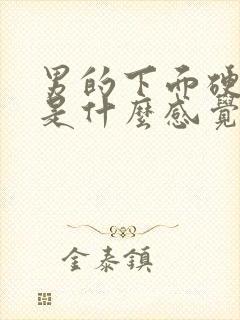 男的下面硬
是什麼感覺
金泰鎮